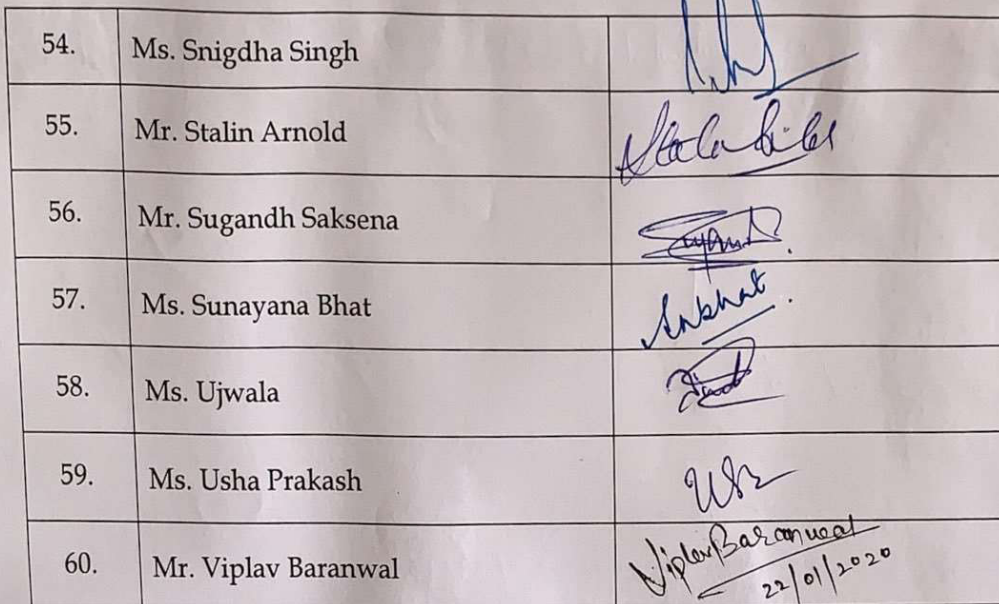 54. Ms. Snigdha Singh
55. Mr. Stalin Arnold
56. Mr. Sugandh Saksena
57. Ms. Sunayana Bhat Snbhat.
58. Ms. Ujwala
59. Ms. Usha Prakash
60. Mr. Viplav Baranwal Viplav Baranwal
22/01/2020